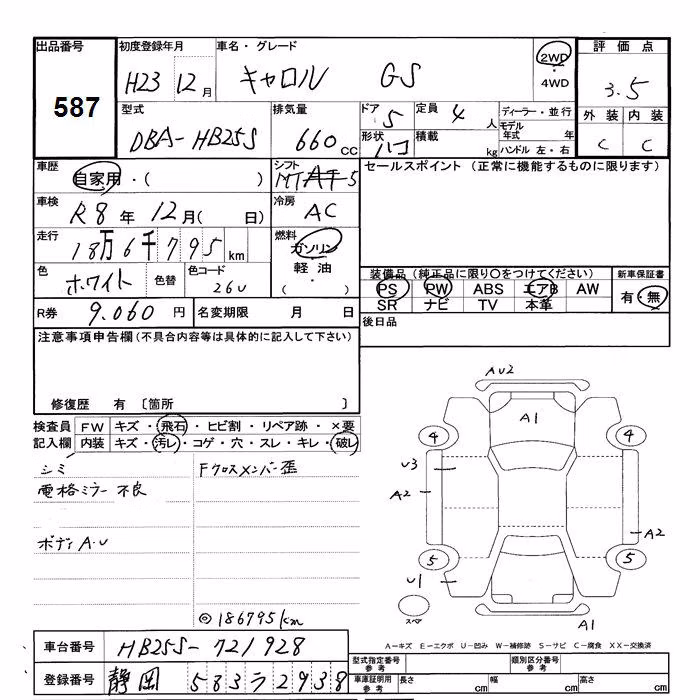 出品番号 初度登録年月 車名・グレード 評価点
587 H23 12月 キャロル GS 2WD・4WD 3.5
型式 排気量 ドア 定員 ディーラー・並行 外装 内装
DBA-HB25S 660cc 5 4人 モデル年式 年 C C
形状 ハコ 積載 kg ハンドル 左・右
車歴 シフト セールスポイント (正常に機能するものに限ります)
自家用・( ) MT AT 5
車検 冷房
R8年 12月( 日) AC
走行 燃料
18万6千795km ガソリン
軽油
・( )
色 色替 色コード 装備品 (純正品に限り○をつけてください) 新車保証書
ホワイト 26U PS PW ABS エアB AW 有・無
SR ナビ TV 本革
R券 9.060円 名変期限 月 日 後日品
注意事項申告欄(不具合内容等は具体的に記入して下さい)
修復歴 有 〔箇所 〕
検査員 FW キズ・飛石・ヒビ割・リペア跡・×要
記入欄 内装 キズ・汚レ・コゲ・穴・スレ・キレ・破レ
シミ Fクロスメンバー歪
電格ミラー不良
ボディA.U
◎186795km
AU2
A1
4 4
U3
A2
A2
5 5
U1
スペア
A1
A-キズ E-エクボ U-凹み W-補修跡 S-サビ C-腐食 XX-交換済
車台番号 HB25S-721928
型式指定番号 参考 類別区分番号 参考
登録番号 静岡 583ワ2938
車庫証明用 参考 長さ cm 幅 cm 高さ cm